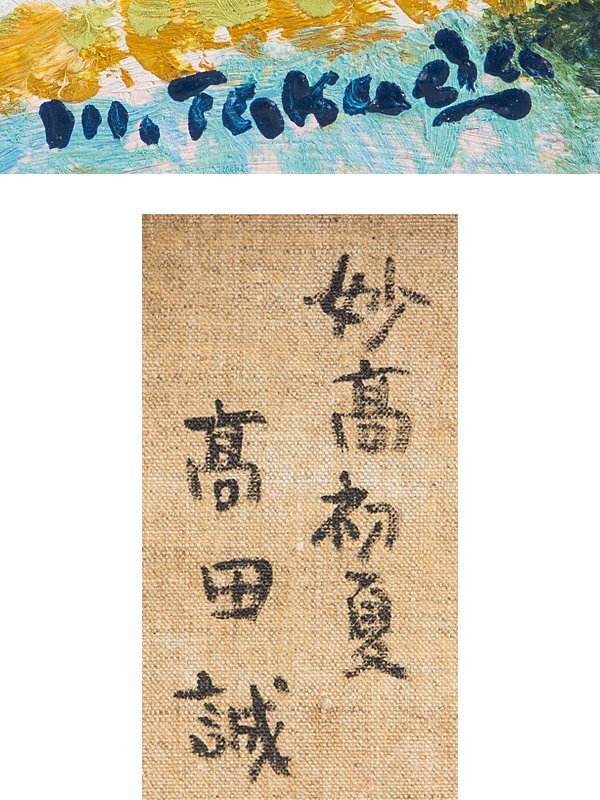 m. Takada
妙高初夏
高田誠